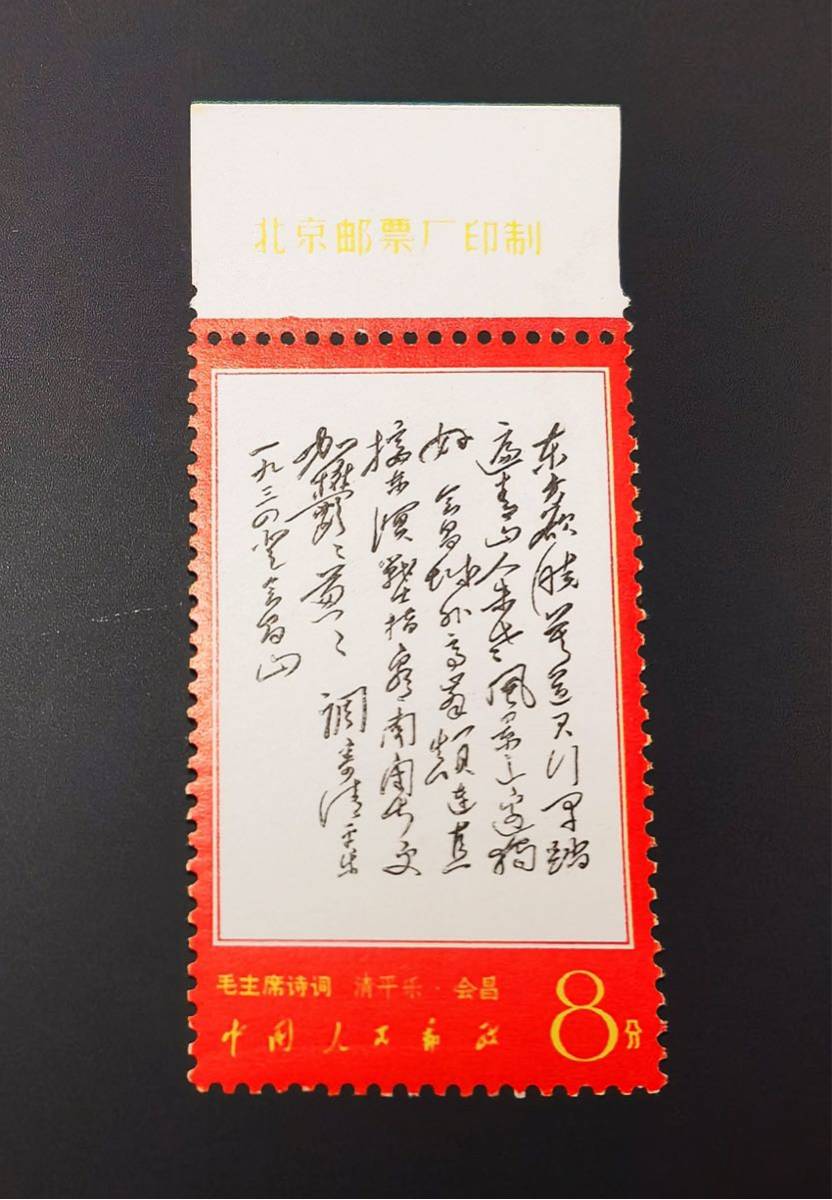 北京邮票厂印制
东方欲晓莫道君行早踏
遍青山人未老風景这边独
好 会昌城外高峯颠连直
接东溟戰士指看南粤更
加鬱々葱々 調寄清平乐
一九三四登会昌山
毛主席诗词 清平乐·会昌
中国人民邮政
8分